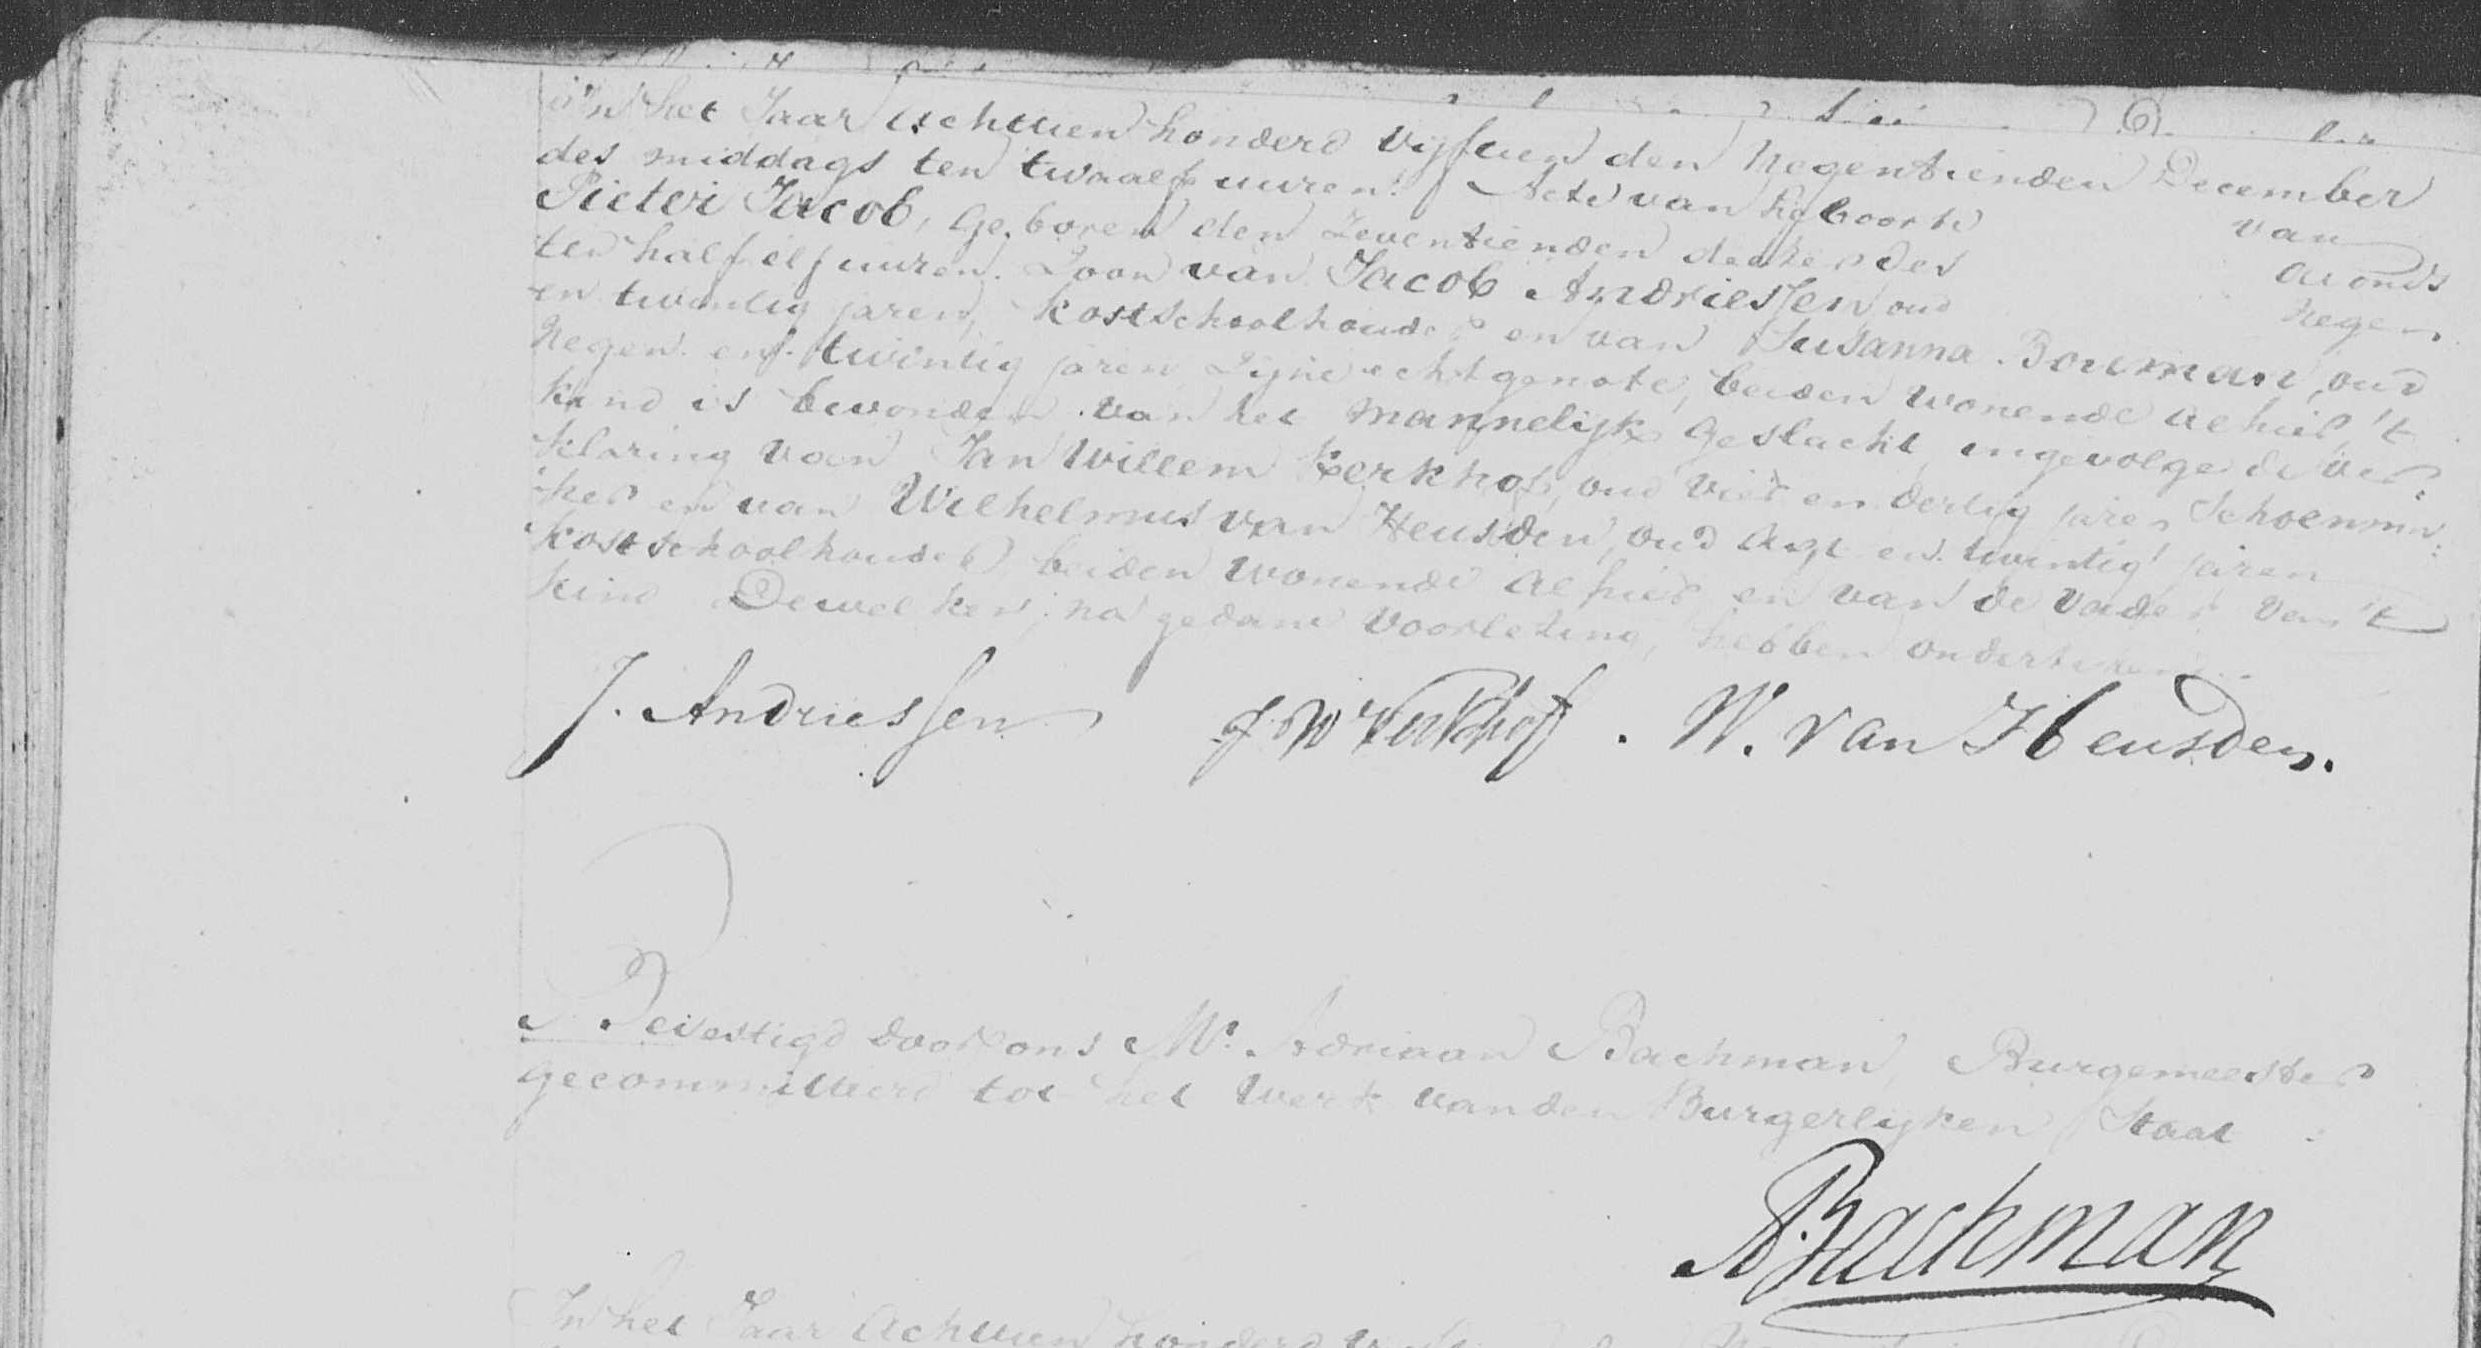 in het Jaar achttien honderd vyftien den negentienden December
des middags ten twaalf uuren! Acte van Geboorte van
Pieter Jacob, geboren den Zeventienden dezer des avonds
ten half elf uuren. Zoon van Jacob Andriessen oud negen
en twintig jaren, kostschoolhouder en van Susanna Bouman, oud
negen en twintig jaren Zyne echtgenote, beiden wonende alhier, 't
kind is bevonden van het mannelijk geslacht, ingevolge de ver:
klaring van Jan Willem Kerkhof, oud vier en dertig jaren Schoenma:
ker en van Wilhelmus van Heusden, oud agt en twintig jaren
kostschoolhouder beiden wonende alhier en van de Vader van 't
kind Dewelken, na gedane voorlezing, hebben ondertekend
J. Andriessen J W Kerkhoff. W. van Heusden.
Bevestigd door ons Mr. Adriaan Bachman, Burgemeester
gecommitteerd tot het werk van den Burgerlyken Staat
A Bachman
In het Jaar Achttien honderd